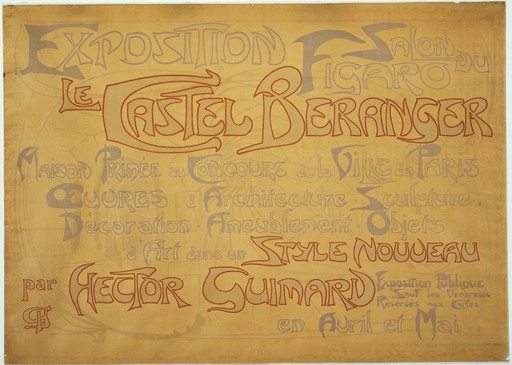 Exposition Salon du Figaro
Le Castel Beranger
Maison Primée au Concours de la Ville de Paris
Œuvres d'Architecture · Sculpture ·
Décoration · Ameublement · Objets
d'Art dans un Style Nouveau
par Hector Guimard
Exposition Publique
Sauf les Vendredis
Réservés aux Cartes
en Avril et Mai